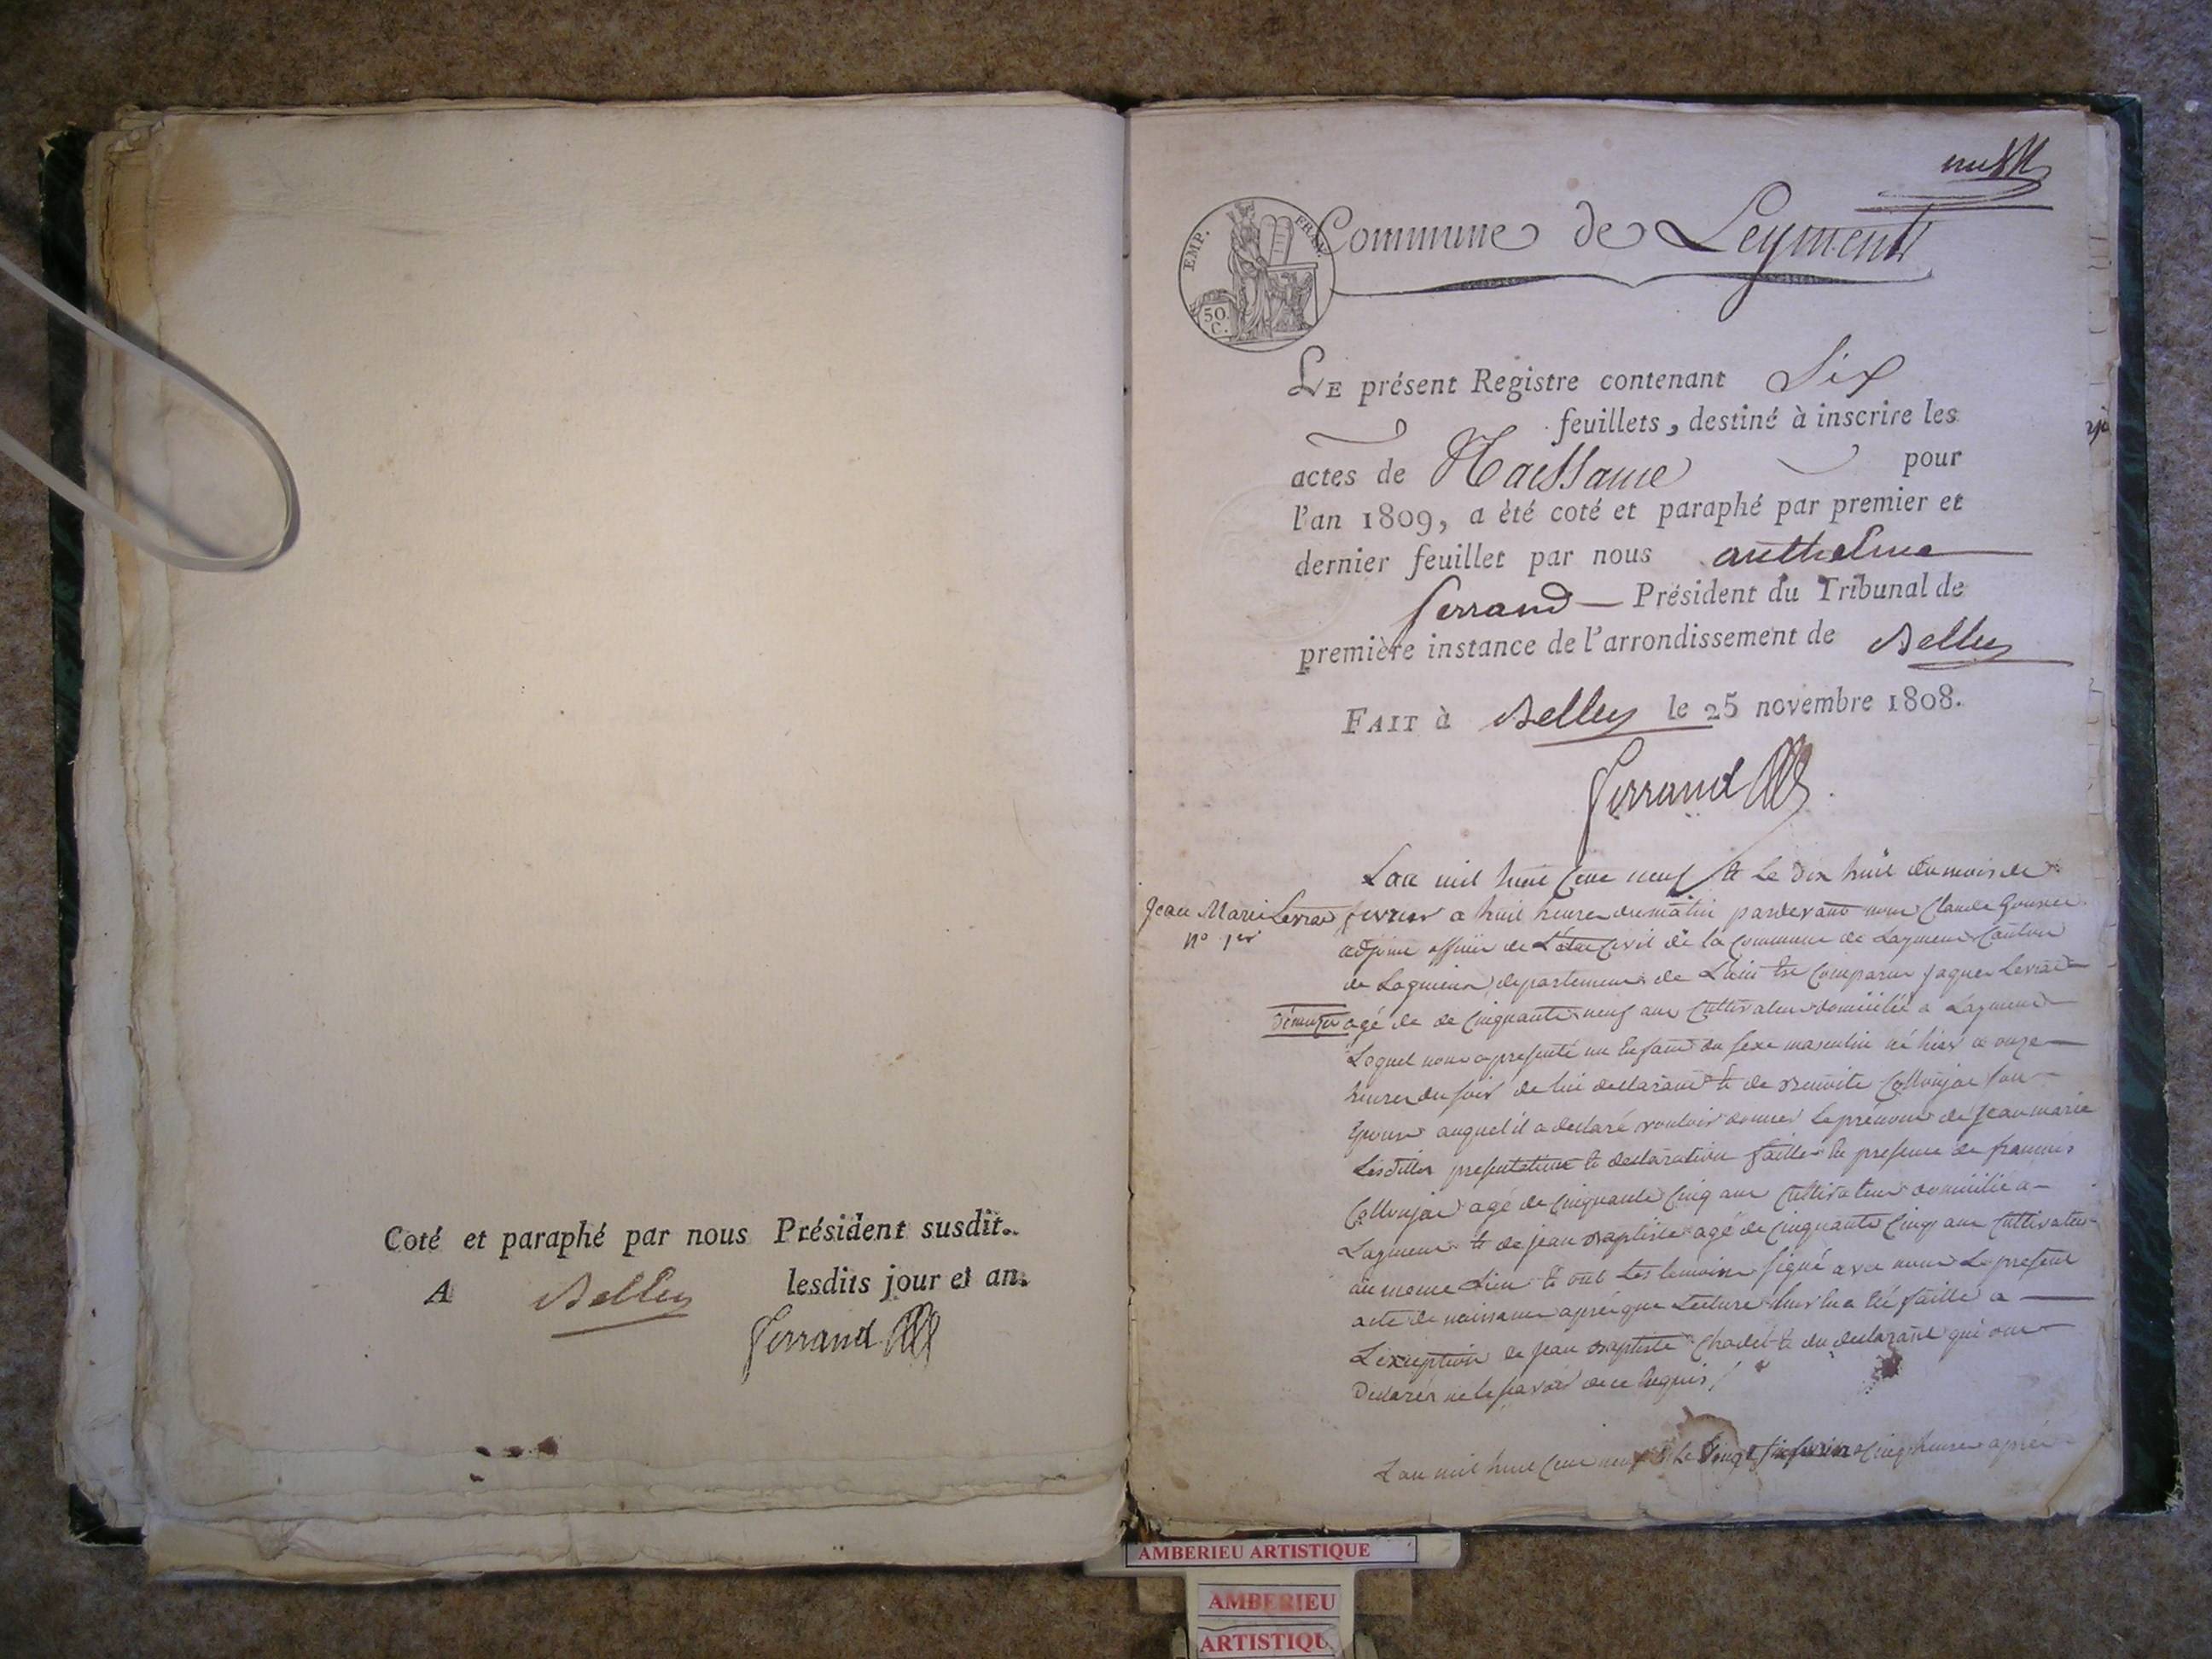 Coté et paraphé par nous Président susdit.
A Belley lesdits jour et an.
Ferrand
EMP. FRAN.
50 C.
Commune de Leyment
LE présent Registre contenant Six
feuillets, destiné à inscrire les
actes de Naissance pour
l'an 1809, a èté coté et paraphé par premier et
dernier feuillet par nous anthelme
ferrand Président du Tribunal de
première instance de l'arrondissement de Belley
FAIT à Belley le 25 novembre 1808.
Ferrand
Jean Marie Levrat
n° 1er
L'an mil huit cent neuf et le dix huit du mois de
fevrier a huit heures du matin pardevant nous Claude
adjoint officier de L'état Civil de la Commune de Layment Canton
de Lagnieux departement de L'ain est Comparu jaques Levrat
agé de de cinquante neuf ans Cultivateur domicilié a Layment
Lequel nous a presenté un Enfant du sexe masculin né hier a onze
heures du soir de lui declarant et de Benoite Collonjat son
Epouse auquel il a declaré vouloir donner le prénom de Jean marie
Lesdittes presentation et declaration faittes En presence de francois
Collonjat agé de cinquante cinq ans Cultivateur domicilié a
Layment et de jean Baptiste agé de cinquante cinq ans Cultivateur
au meme Lieu et ont Les temoins signé avec nous Le present
acte de naissance après que Lecture Leur En a Eté faitte a
L'exception de jean Baptiste Chodet et du declarant qui ont
Declarés ne le savoir de ce Enquis
L'an mil huit cent neuf et Le vingt six fevrier a cinq heures après
AMBERIEU ARTISTIQUE
AMBERIEU
ARTISTIQU